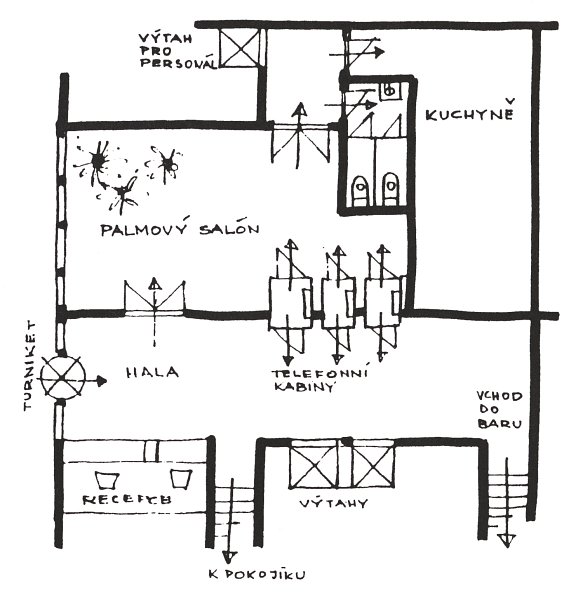 VÝTAH
PRO
PERSONÁL
KUCHYNĚ
PALMOVÝ SALÓN
TURNIKET
HALA
TELEFONNÍ
KABINY
VCHOD
DO
BARU
RECEPCE
VÝTAHY
K POKOJÍKU